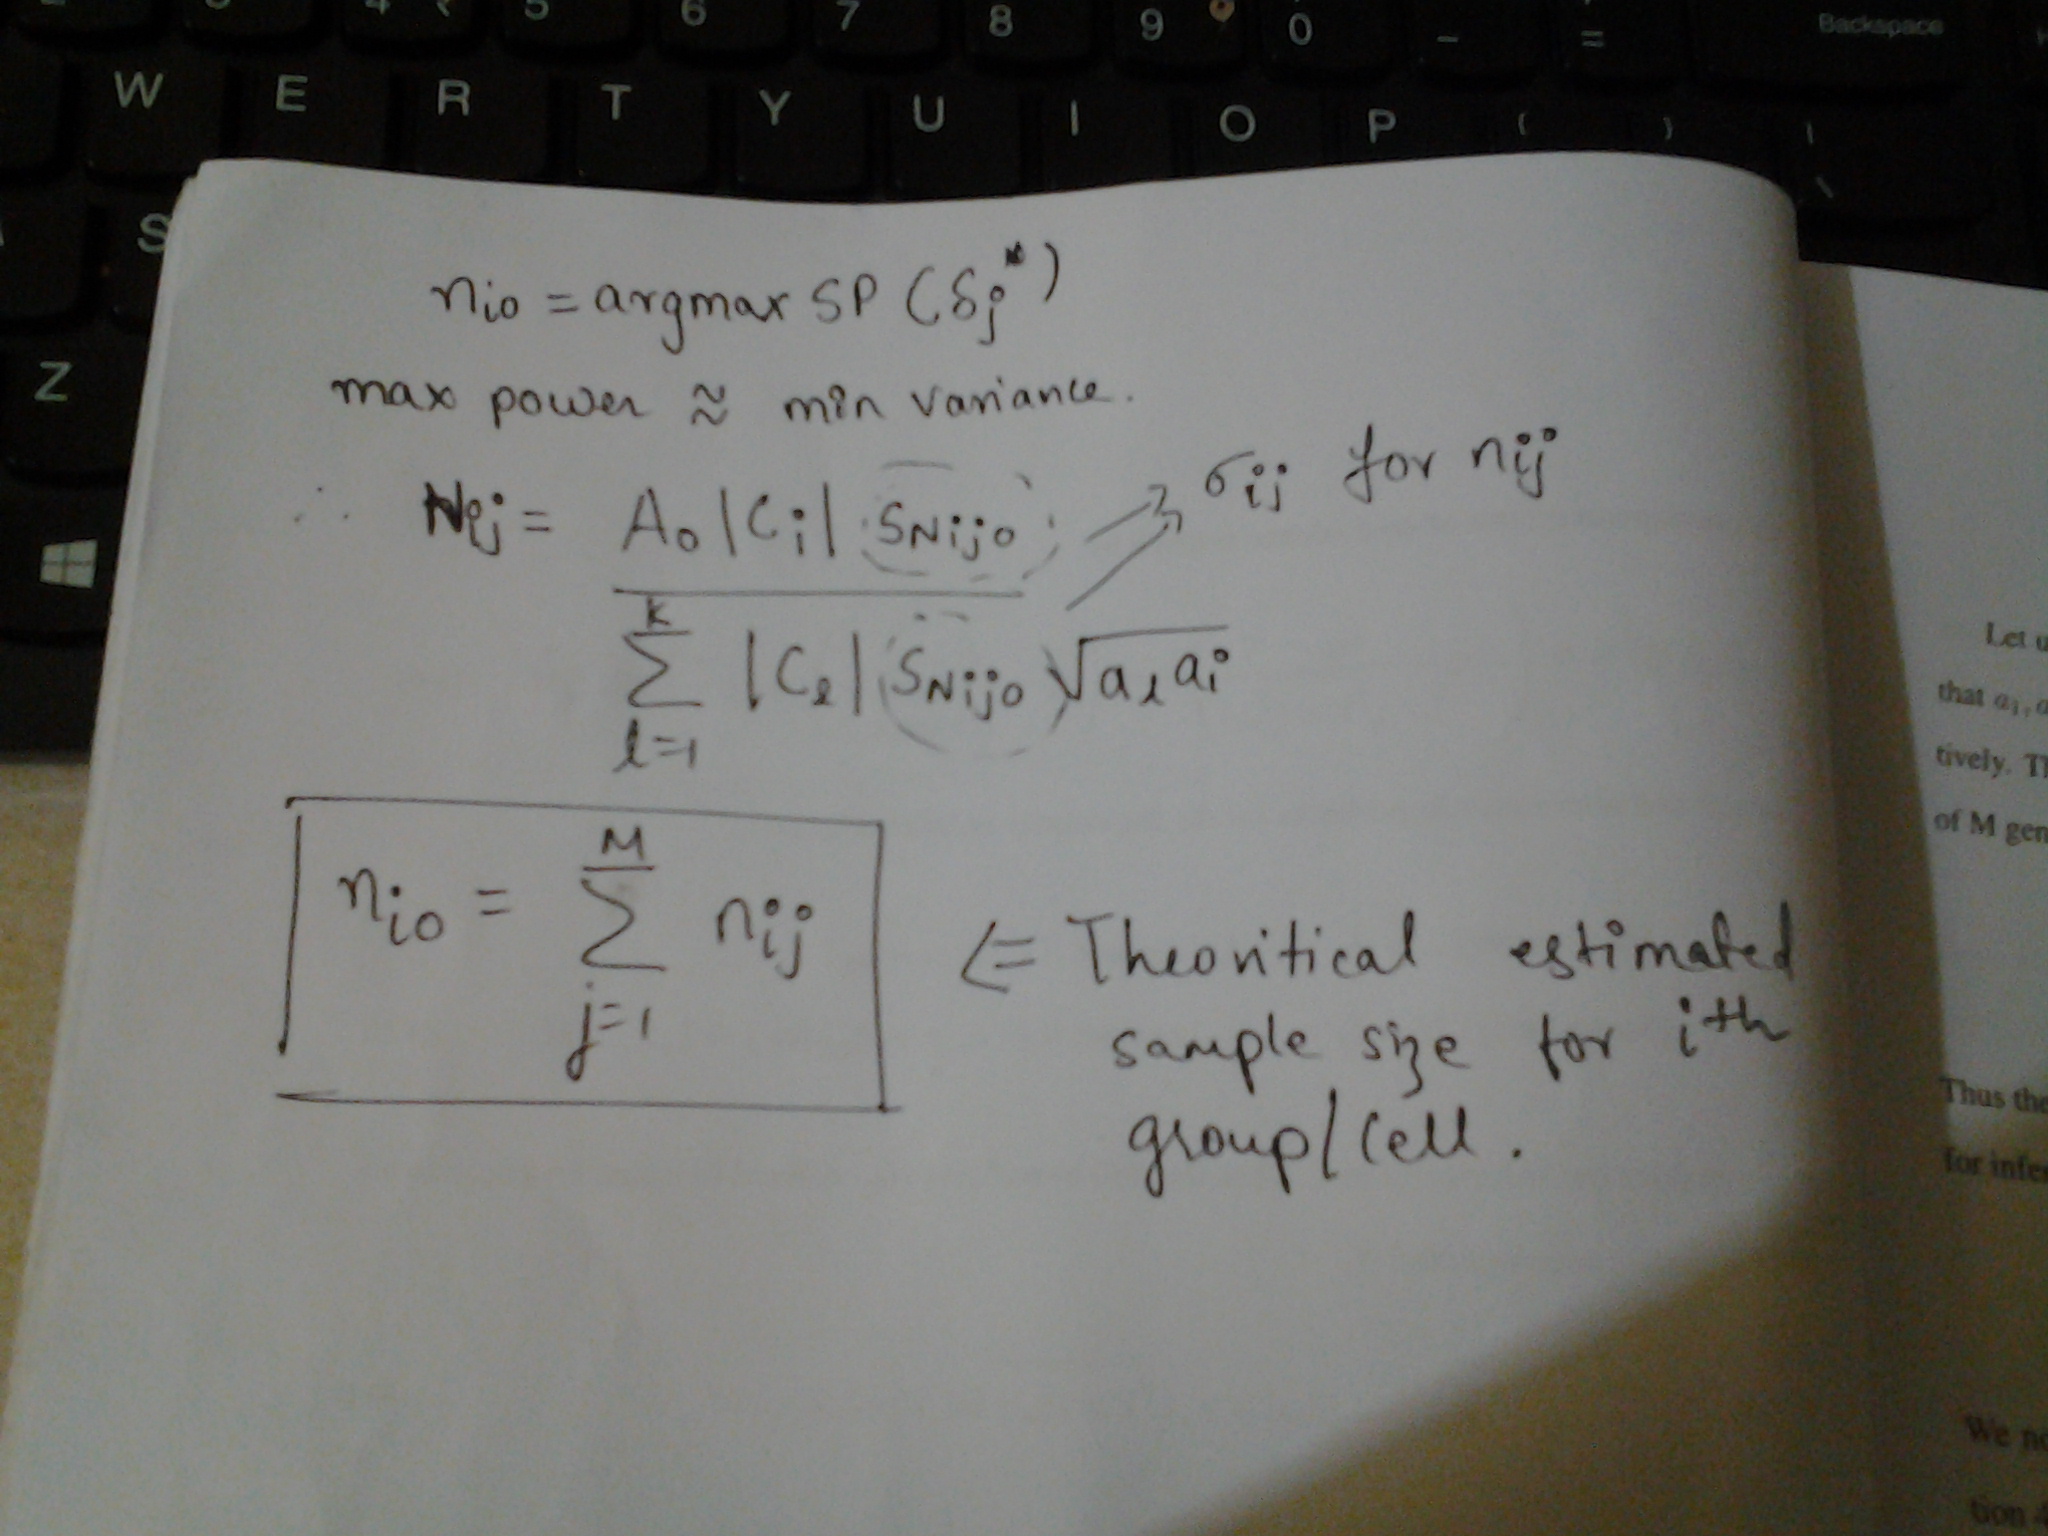 4 5 6 7 8 9 0 - = Backspace
W E R T Y U I O P { } | \
S
Z
n_{io} = argmax SP (δ_j^*)
max power ≈ min variance.
∴ N_{ij} = A_0 |C_i| S_{Nijo} → σ_{ij} for n_{ij}
Σ_{l=1}^{k} |C_l| S_{Nijo} √a_l a_i
n_{io} = Σ_{j=1}^{M} n_{ij} ⇐ Theoritical estimated
sample size for ith
group/cell.
Let
that a_1,
tively.
of M
Thus
for
We
tion